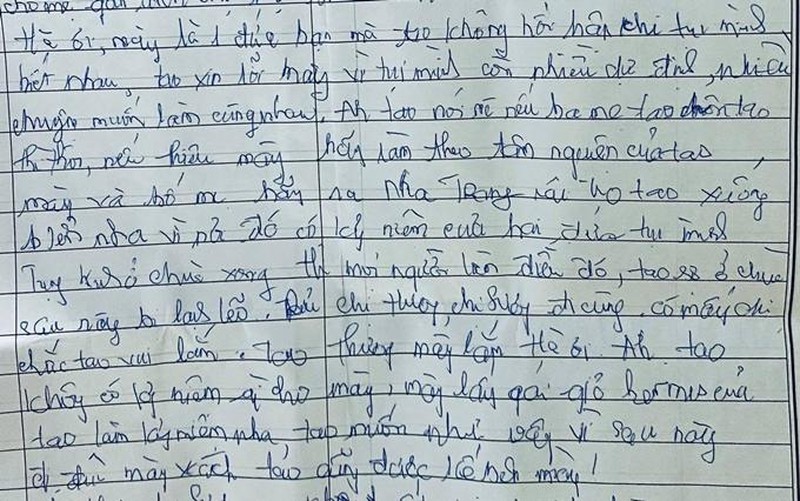 cho mẹ
Hà ơi, mày là 1 đứa bạn mà tao không hối hận khi tụi mình
biết nhau, tao xin lỗi mày vì tụi mình còn nhiều dự định, nhiều
chuyện muốn làm cùng nhau. Ah tao nói rồi nếu ba mẹ tao chôn tao
thì thôi, nếu thiêu mày hãy làm theo tâm nguyện của tao
mày và bố mẹ hãy ra Nha Trang rải tro tao xuống
biển nha vì nơi đó có kỷ niệm của hai đứa tụi mình
Tụng kinh ở chùa xong thì mọi người làm điều đó, tao sợ ở chùa
sau này bị lạnh lẽo. chị thủy, chị đi cùng. có mấy chị
chắc tao vui lắm. tao thương mày lắm Hà ơi. Ah tao
không có kỷ niệm gì cho mày, mày lấy cái giỏ hermes của
tao làm kỷ niệm nha tao muốn như vậy vì sau này
đi đâu mày xách tao cũng được kế bên mày!